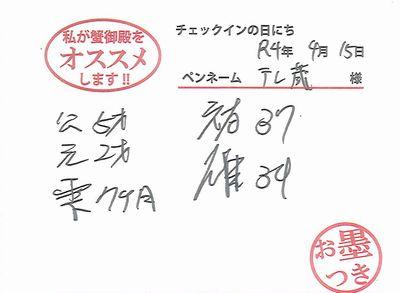 私が蟹御殿を
オススメ
します!!
チェックインの日にち
R4年 4月 15日
ペンネーム テレ蔵 様
公 5才
元 2才
37
雄 34
お墨
つき